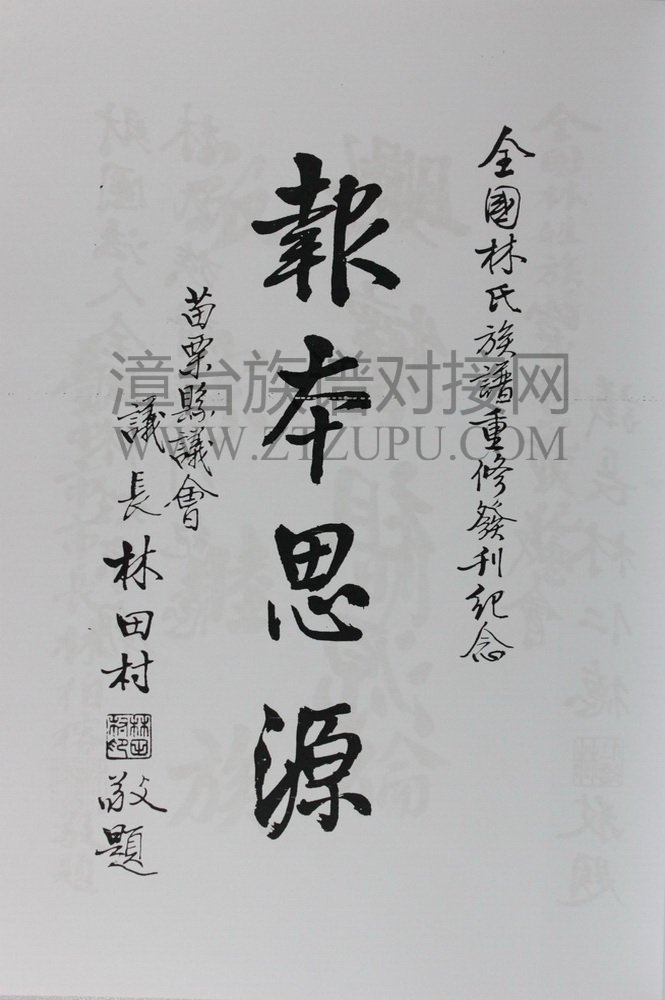 全國林氏族譜重修發刊紀念
報本思源
苗栗縣議會
議長林田村
林田村印
敬題
漳台族谱对接网
WWW.ZTZUPU.COM